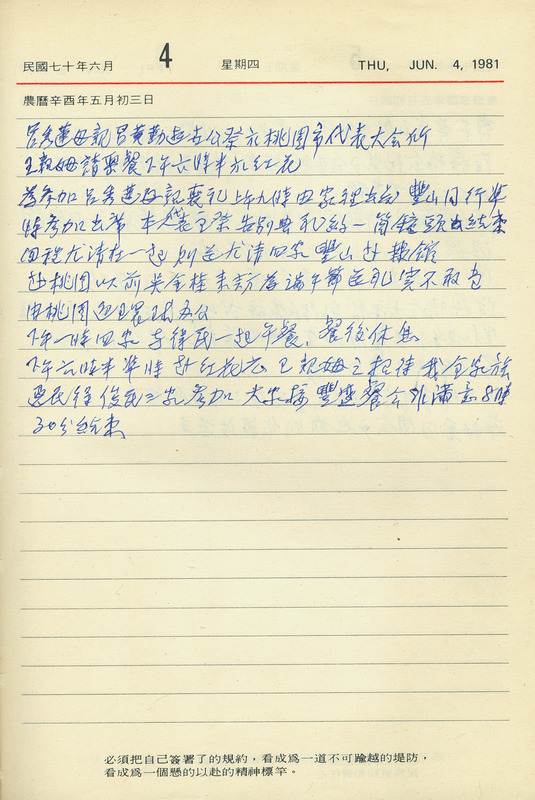 民國七十年六月 4 星期四 THU, JUN. 4, 1981
農曆辛酉年五月初三日
呂秀蓮母親呂黃勤逝去公祭於桃園市代表大會所
王親姆請樂餐下午六時半於紅花
為參加呂秀蓮母親喪禮上午九時由家裡出發 豐山同行準
時參加出席 本人代表主祭告別典禮約一箇鐘頭結束
回程尤清在一起 別送尤清回家 豐山赴報館
赴桃園以前吳金桂來訪為端午節送禮實不敢当
由桃園返
下午一時回家 李律民一起午餐，餐後休息
下午六時半準時赴紅花 王親姆之招待 我全家族
惠民 俊民二家參加 大家接豐盛餐今非滿意 8時
30分結束
必須把自己簽署了的規約，看成爲一道不可踰越的堤防，
看成爲一個懸的以赴的精神標竿。